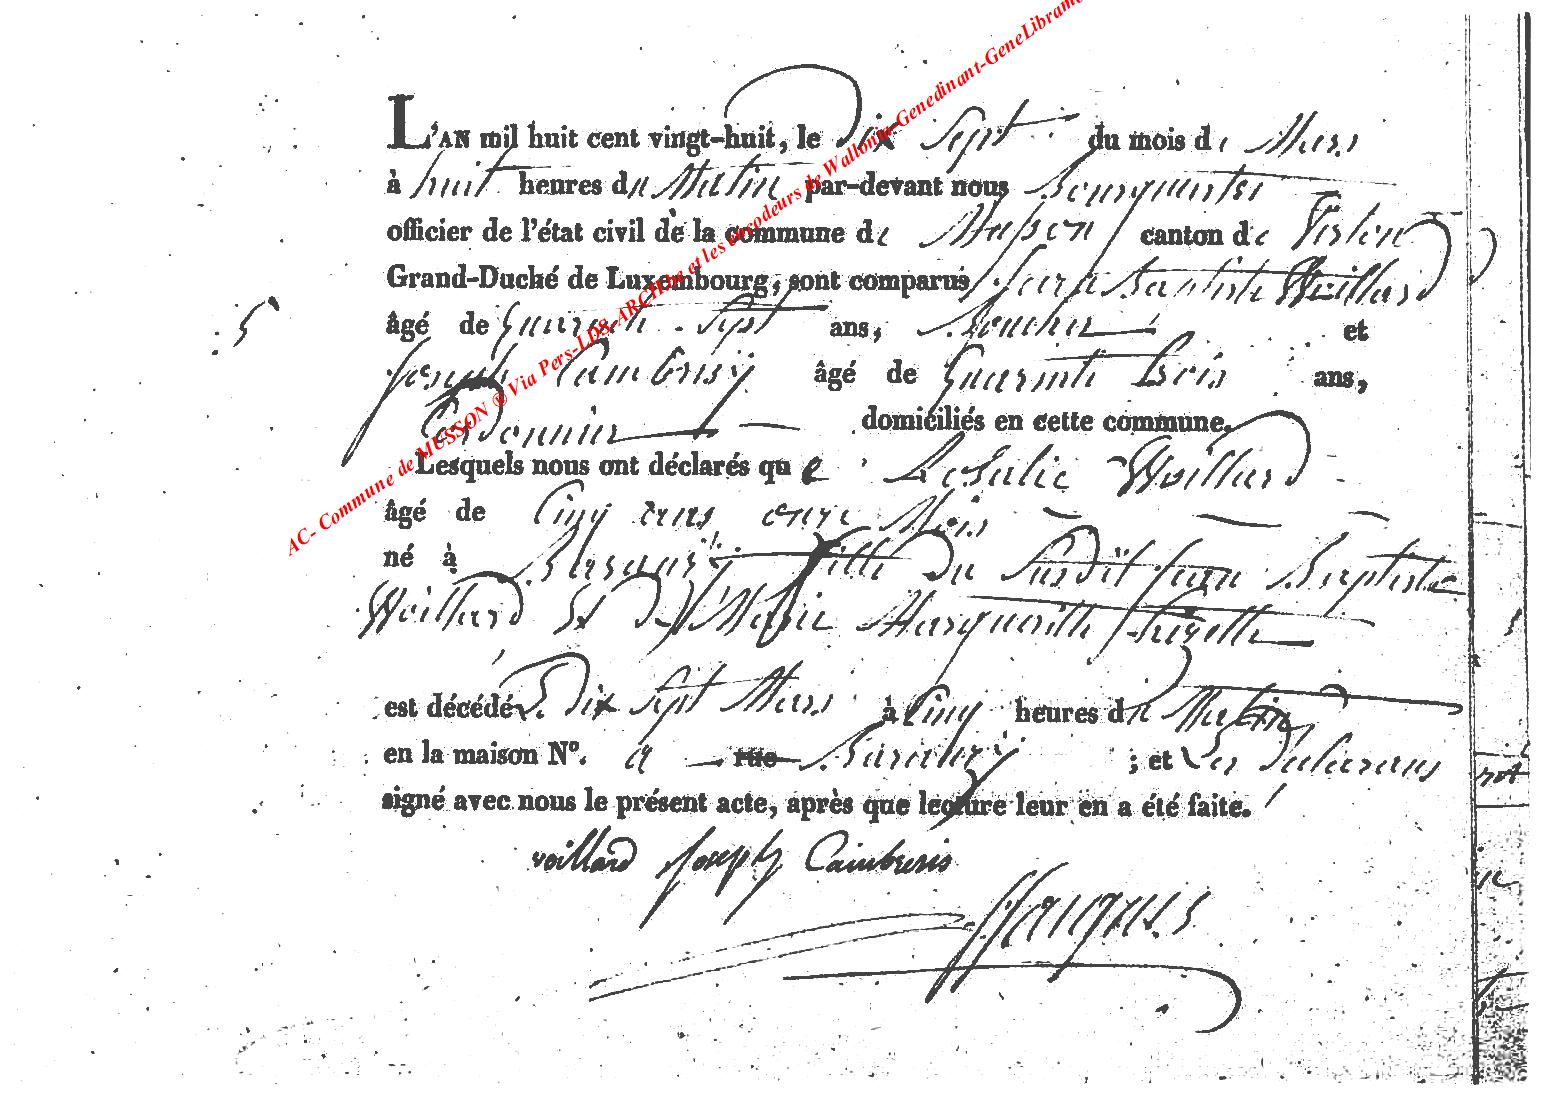 L'AN mil huit cent vingt-huit, le Dix Sept du mois de Mars
à huit heures du Matin par-devant nous
officier de l'état civil de la commune de Musson canton de Virton
Grand-Duché de Luxembourg, sont comparus Jean Baptiste Woillard
5
âgé de Quarante Sept ans, et
Joseph Cambrisy âgé de Quarante trois ans,
Cordonnier domiciliés en cette commune.
Lesquels nous ont déclarés que Rosalie Woillard
âgé de Cinq ans onze Mois
né à Baranzy fille du Susdit Jean Baptiste
Woillard Et De Marie Margueritte
est décédé Le dix Sept Mars à Cinq heures du Matin
en la maison N°. a rue Baranzy ; et Les Déclarans
signé avec nous le présent acte, après que lecture leur en a été faite.
voillard Joseph Cambresis
AC- Commune de MUSSON @ Via Pers-LDS-ARCHbe et les encodeurs de Wallonia-Genedinant-GeneLibramo